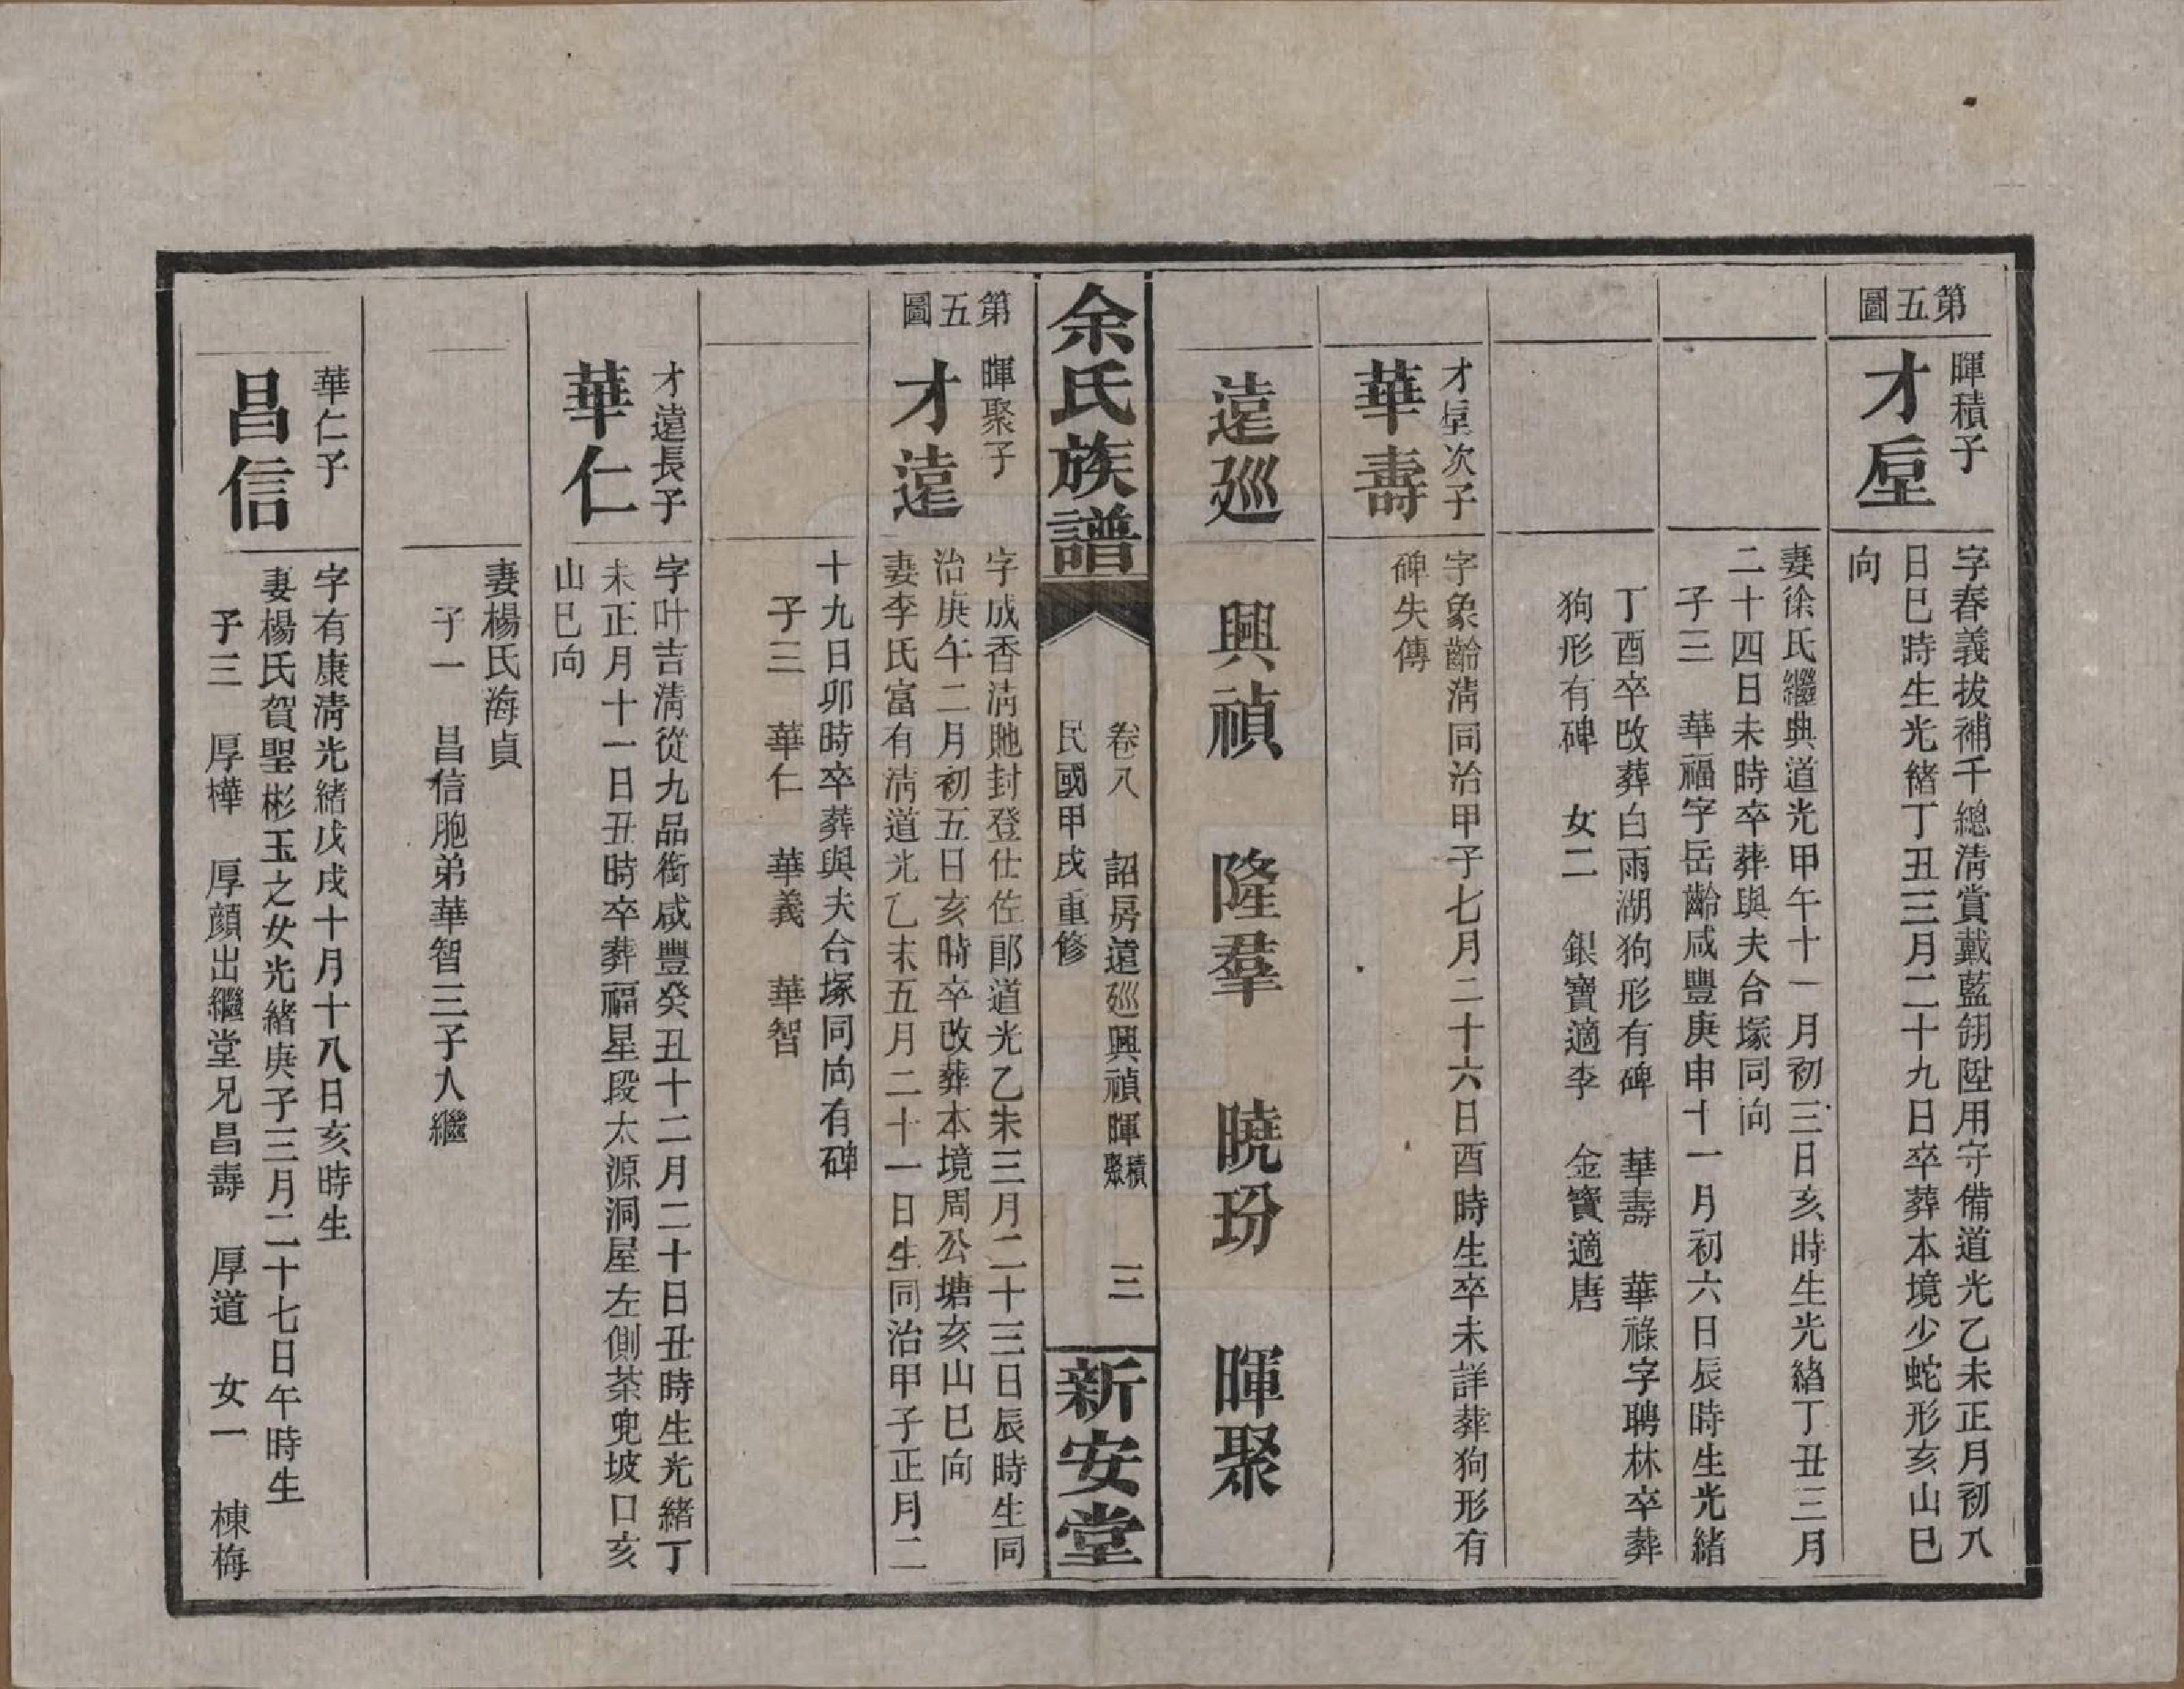 第五圖
暉積子
才垕
字春義拔補千總淸賞戴藍翎陞用守備道光乙未正月初八
日巳時生光緒丁丑三月二十九日卒葬本境少蛇形亥山巳
向
妻徐氏繼典道光甲午十一月初三日亥時生光緒丁丑三月
二十四日未時卒葬與夫合塚同向
子三　華福字岳齡咸豐庚申十一月初六日辰時生光緒
丁酉卒改葬白雨湖狗形有碑　華壽　華祿字聘林卒葬
狗形有碑　女二　銀寶適李　金寶適唐
才垕次子
華壽
字象齡淸同治甲子七月二十六日酉時生卒未詳葬狗形有
碑失傳
遠廵　興禎　隆羣　曉玢　暉聚
余氏族譜
卷八　詔房遠廵興禎暉積聚　三
民國甲戌重修
新安堂
第五圖
暉聚子
才遠
字成香淸貤封登仕佐郞道光乙未三月二十三日辰時生同
治庚午二月初五日亥時卒改葬本境周公塘亥山巳向
妻李氏富有淸道光乙未五月二十一日生同治甲子正月二
十九日卯時卒葬與夫合塚同向有碑
子三　華仁　華義　華智
才遠長子
華仁
字叶吉淸從九品銜咸豐癸丑十二月二十日丑時生光緒丁
未正月十一日丑時卒葬福星段太源洞屋左側茶兜坡口亥
山巳向
妻楊氏海貞
子一　昌信胞弟華智三子入繼
華仁子
昌信
字有康淸光緒戊戌十月十八日亥時生
妻楊氏賀聖彬玉之女光緒庚子三月二十七日午時生
子三　厚樺　厚顔出繼堂兄昌壽　厚道　女一　棟梅